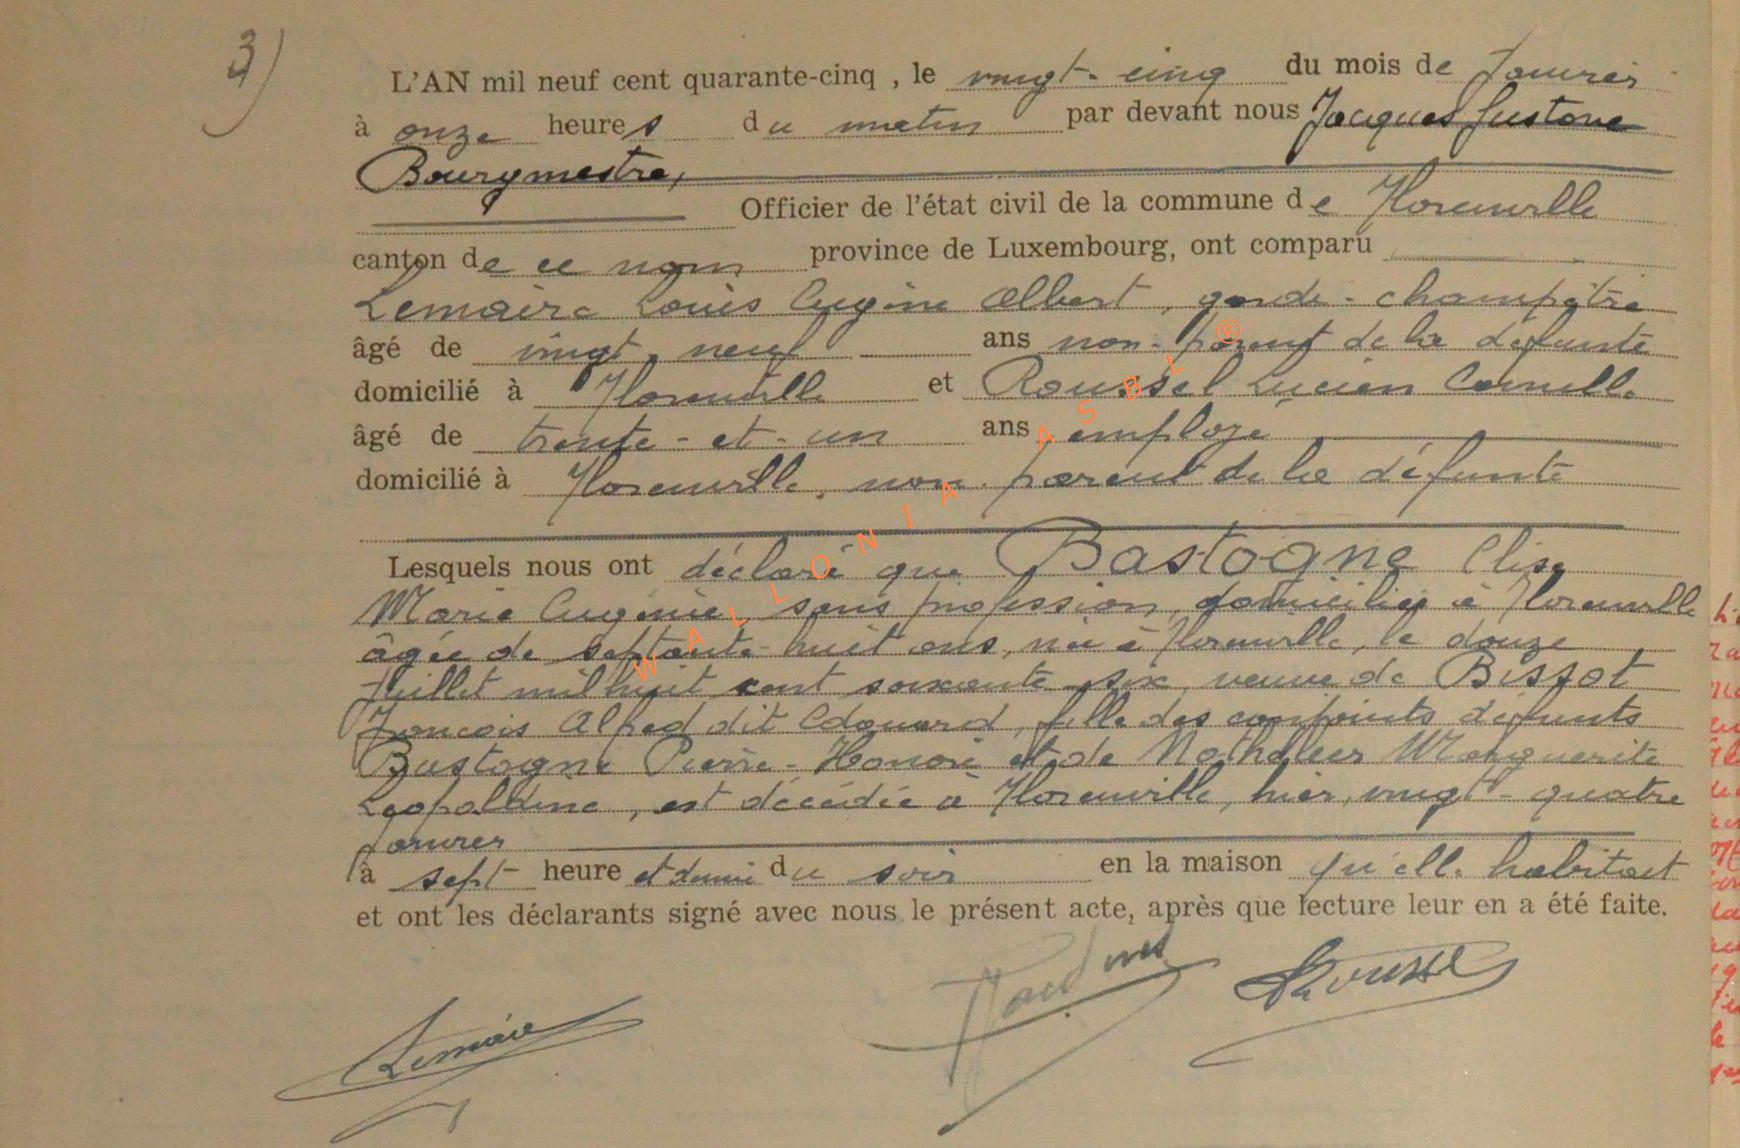 3)
L'AN mil neuf cent quarante-cinq , le vingt-cinq du mois de Janvier
à onze heures du matin par devant nous Jacques Gustave
Bourgmestre,
Officier de l'état civil de la commune de Florenville
canton de ce nom province de Luxembourg, ont comparu
Lemaire Louis Eugène Albert, garde-champêtre
âgé de vingt neuf ans non-parent de la défunte
domicilié à Florenville et Roussel Lucien Camille
âgé de trente-et-un ans, employé
domicilié à Florenville, non parent de la défunte
Lesquels nous ont déclaré que Bastogne Elise
Marie Eugénie, sans profession, domiciliée à Florenville
âgée de septante-huit ans, née à Florenville, le douze
Juillet mil huit cent soixante six, veuve de Bissot
François Alfred dit Edouard, fille des conjoints défunts
Bastogne Pierre-Honoré et de Marguerite
Léopoldine, est décédée à Florenville, hier, vingt-quatre
janvier
à sept heure et demie du soir en la maison qu'elle habitait
et ont les déclarants signé avec nous le présent acte, après que lecture leur en a été faite.
Lemaire Roussel
WALLONIA ASBL ®